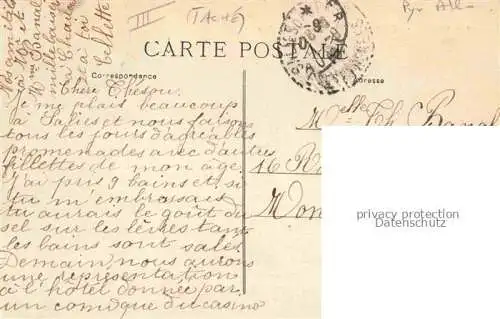 (TACHÉ)
CARTE POSTALE
Correspondance
Adresse
Chère Thésou.
Je me plais beaucoup
à Salies et nous faisons
tous les jours d'agréables
promenades avec d'autres
fillettes de mon âge.
J'ai pris 9 bains et, si
tu m'embrassais
tu aurais le goût du
sel sur les lèvres tant
les bains sont salés.
Demain, nous aurons
une représentation
à l'hôtel donnée par
un comique du casino
Melle Th.
16 R
privacy protection
Datenschutz